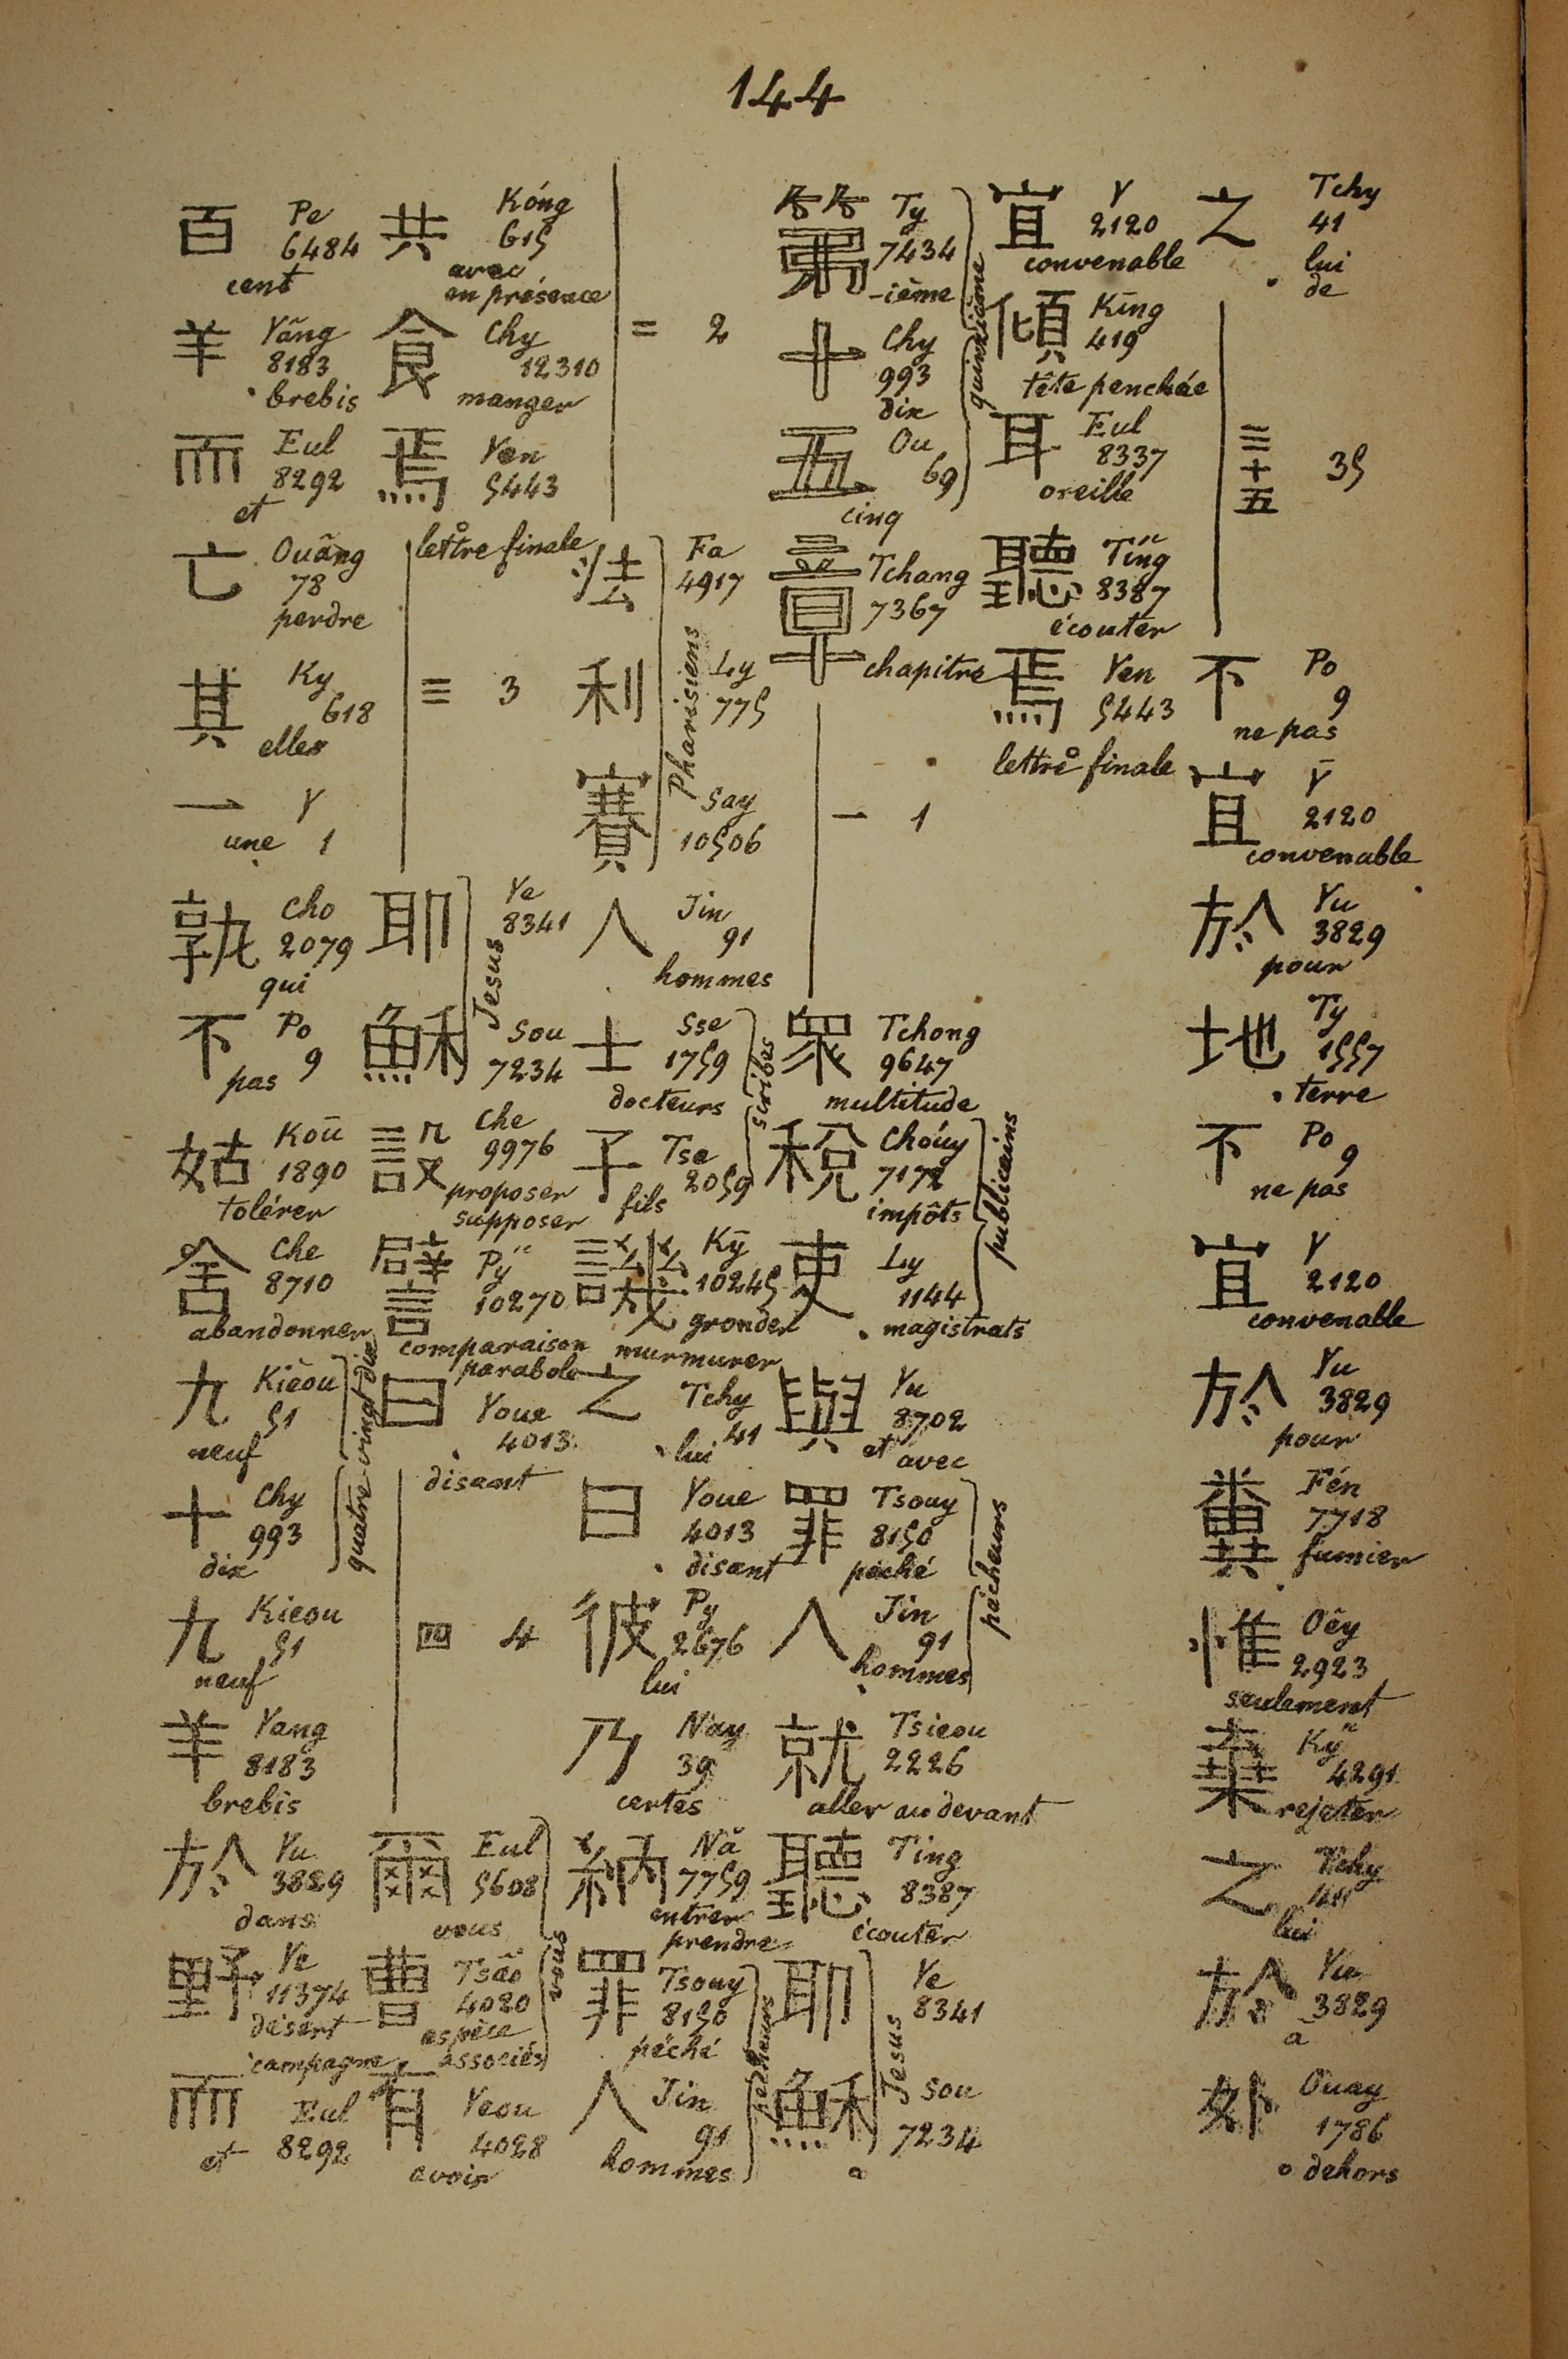 144
之 Tchy
41
lui
de
三十五 35
不 Po
9
ne pas
宜 Y
2120
convenable
於 Yu
3829
pour
地 Ty
1557
terre
不 Po
9
ne pas
宜 Y
2120
convenable
於 Yu
3829
pour
糞 Fén
7718
fumier
惟 Oêy
2923
seulement
棄 Ky
4291
rejeter
之 Tchy
lui
於 Yu
3829
à
外 Ouay
1786
dehors
宜 Y
2120
convenable
傾 King
419
tête penchée
耳 Eul
8337
oreille
聽 Ting
8387
écouter
焉 Yen
5443
lettre finale
第 Ty
7434
-ième
十 Chy
993
dix
五 Ou
69
cinq
quinzième
章 Tchang
7367
chapitre
一 1
眾 Tchong
9647
multitude
稅 Choúy
7172
impôts
吏 Ly
1144
magistrats
publicains
與 Yu
8702
et avec
罪 Tsouy
8150
péché
人 Jin
91
hommes
pécheurs
就 Tsieou
2226
aller au devant
聽 Ting
8387
écouter
耶 Ye
8341
穌 Sou
7234
Jesus
= 2
法 Fa
4917
利 Ly
775
賽 Say
10506
Pharisiens
人 Jin
91
hommes
士 Sse
1759
docteurs
子 Tse
2059
fils
scribes
譏 Ky
10245
gronder
murmurer
之 Tchy
41
lui
曰 Youe
4013
disant
彼 Py
2676
lui
乃 Nay
39
certes
納 Nă
7759
entrer
prendre
罪 Tsouy
8150
péché
人 Jin
91
hommes
pécheurs
共 Kóng
615
avec
en présence
食 Chy
12310
manger
焉 Yen
5443
lettre finale
三 3
耶 Ye
8341
穌 Sou
7234
Jesus
設 Che
9976
proposer
supposer
譬 Py
10270
comparaison
parabole
曰 Youe
4013
disant
四 4
爾 Eul
5608
vous
曹 Tsão
4020
espèce
associés
vous
有 Yeou
4028
avoir
百 Pe
6484
cent
羊 Yãng
8183
brebis
而 Eul
8292
et
亡 Ouãng
78
perdre
其 Ky
618
elles
一 Y
1
une
孰 Cho
2079
qui
不 Po
9
pas
姑 Koū
1890
tolérer
舍 Che
8710
abandonner
九 Kièou
51
neuf
十 Chy
993
dix
quatre vingt dix
九 Kieou
51
neuf
羊 Yang
8183
brebis
於 Yu
3829
dans
野 Ye
11374
désert
campagne
而 Eul
8292
et